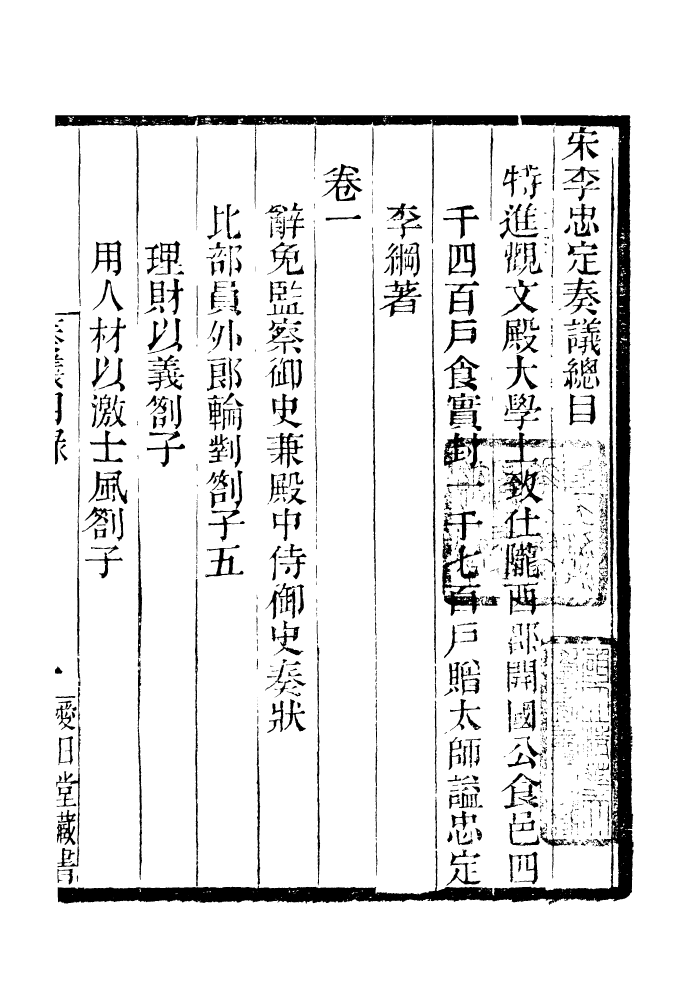 宋李忠定奏議總目
特進觀文殿大學士致仕隴西郡開國公食邑四
千四百戶食實封一千七百戶贈太師謚忠定
李綱著
卷一
辭免監察御史兼殿中侍御史奏狀
比部員外郎輪對劄子五
理財以義劄子
用人材以激士風劄子
奏議目録
愛日堂藏書